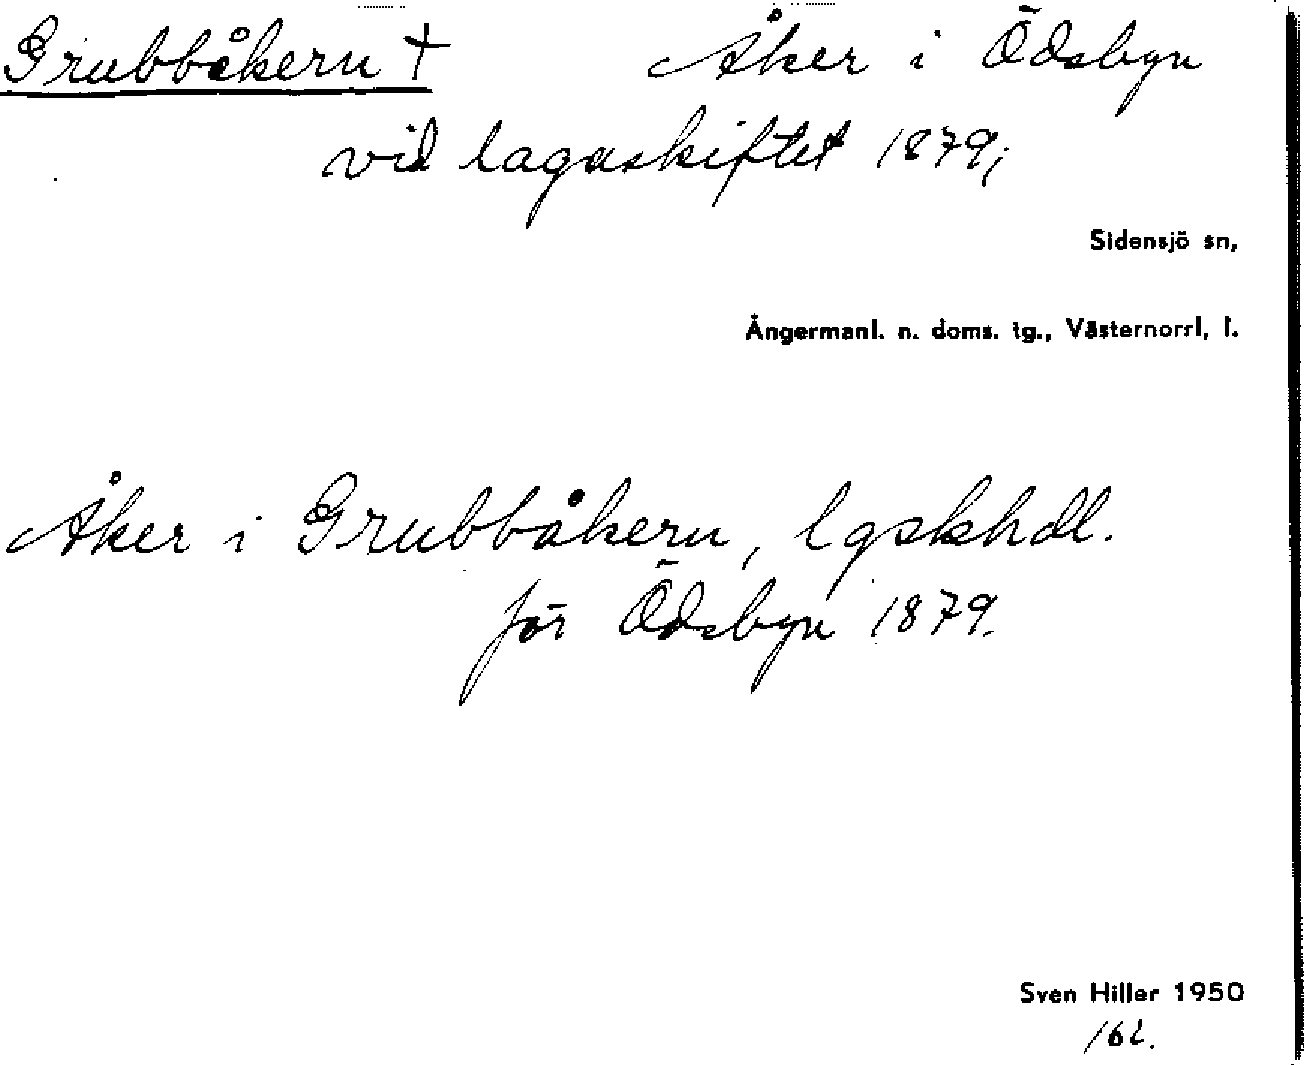 Grubbåkern † Åker i Ödsbyn
vid lagaskiftet 1879;
Sidensjö sn,
Ångermanl. n. doms. tg., Västernorrl, l.
Åker i Grubbåkern, lgskhdl.
för Ödsbyn 1879.
Sven Hiller 1950